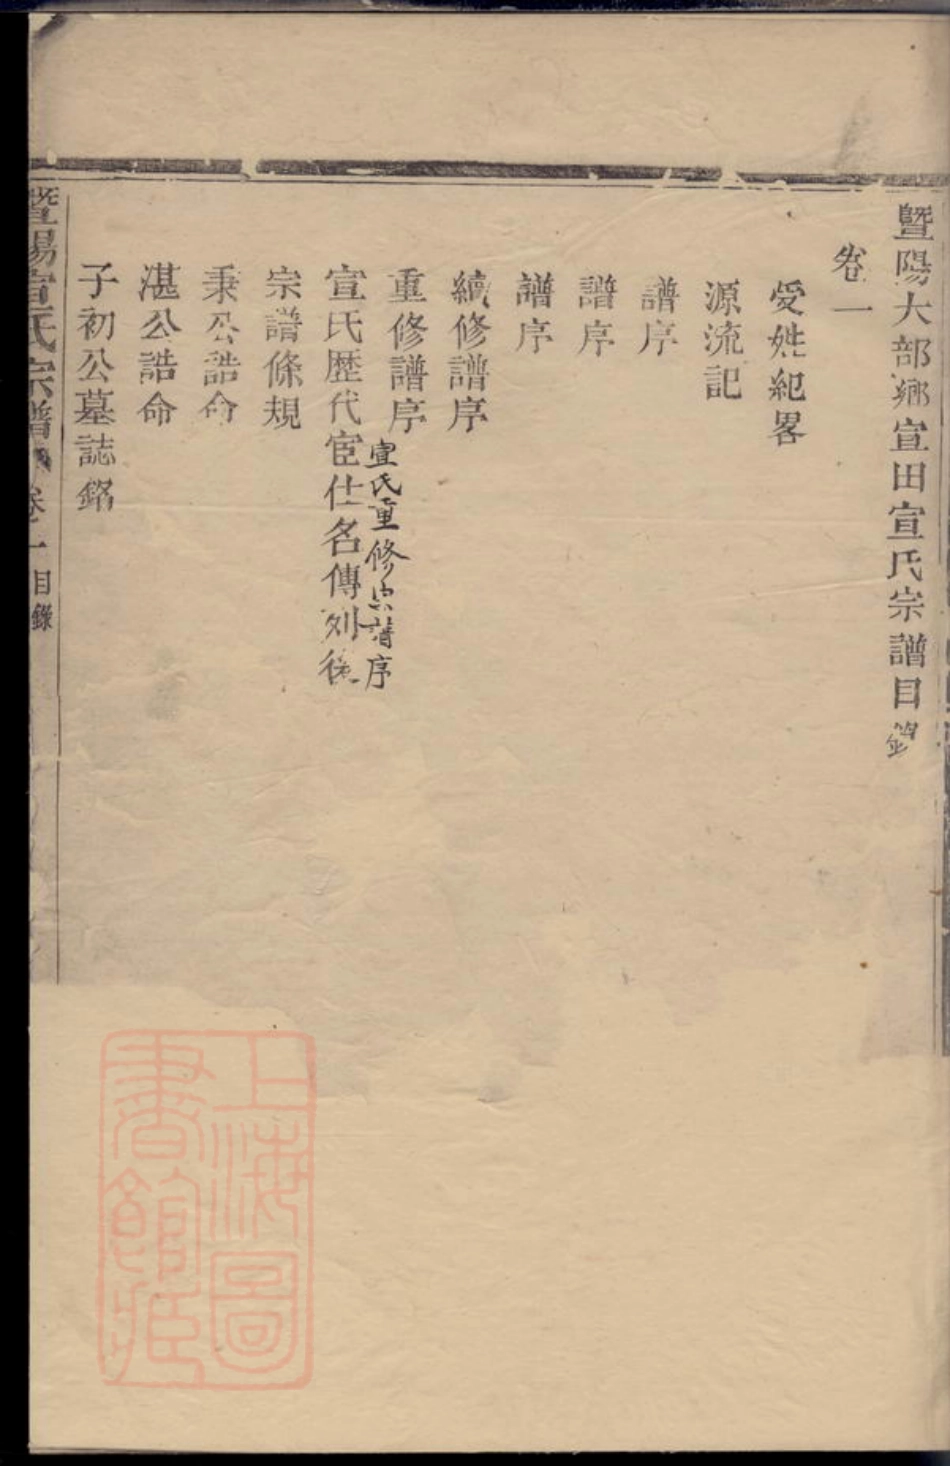 暨陽大部鄉宣田宣氏宗譜目錄
卷一
受姓紀畧
源流記
譜序
譜序
譜序
續修譜序
重修譜序
宣氏重修宗譜序
宣氏歷代宦仕名傳列後
宗譜條規
秉公誥命
湛公誥命
子初公墓誌銘
暨陽宣氏宗譜 卷一 目錄
上海圖
書館藏